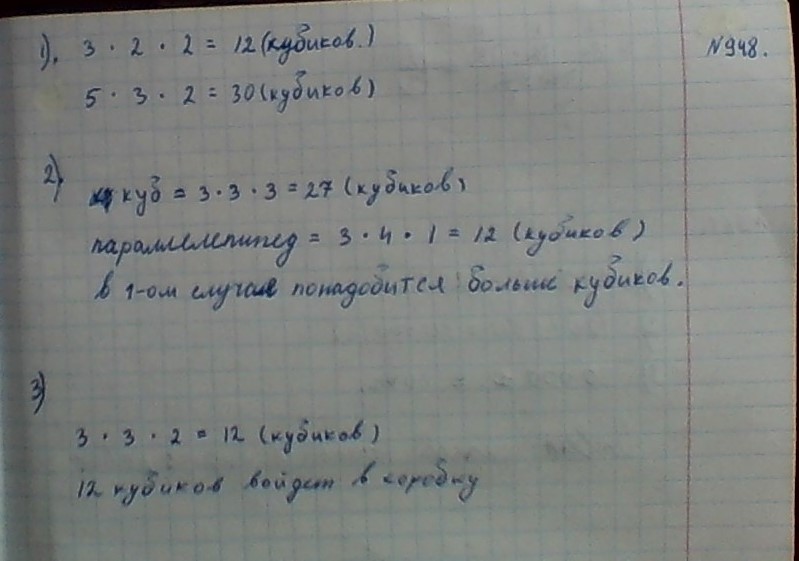 1). 3 · 2 · 2 = 12 (кубиков.)
№948.
5 · 3 · 2 = 30 (кубиков)
2). куб = 3 · 3 · 3 = 27 (кубиков)
параллелепипед = 3 · 4 · 1 = 12 (кубиков)
в 1-ом случае понадобится больше кубиков.
3)
3 · 3 · 2 = 12 (кубиков)
12 кубиков войдет в коробку